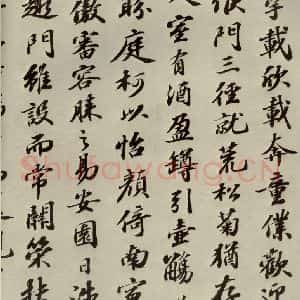 宇載欣載奔童僕歡迎
候門三徑就荒松菊猶存
入室有酒盈罇引壺觴
眄庭柯以怡顏倚南窗
傲審容膝之易安園日涉
趣門雖設而常關策扶
Shufawang.CN